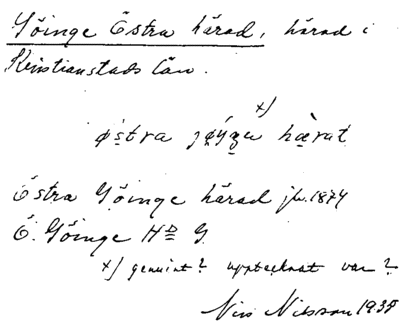 Göinge Östra härad, härad i
Kristianstads län.
x)
ǿstra jǿŋgu hærat
Östra Göinge härad jb. 1874
Ö. Göinge HD G.
x) genuint? upptecknat var?
Nils Nilsson 1938